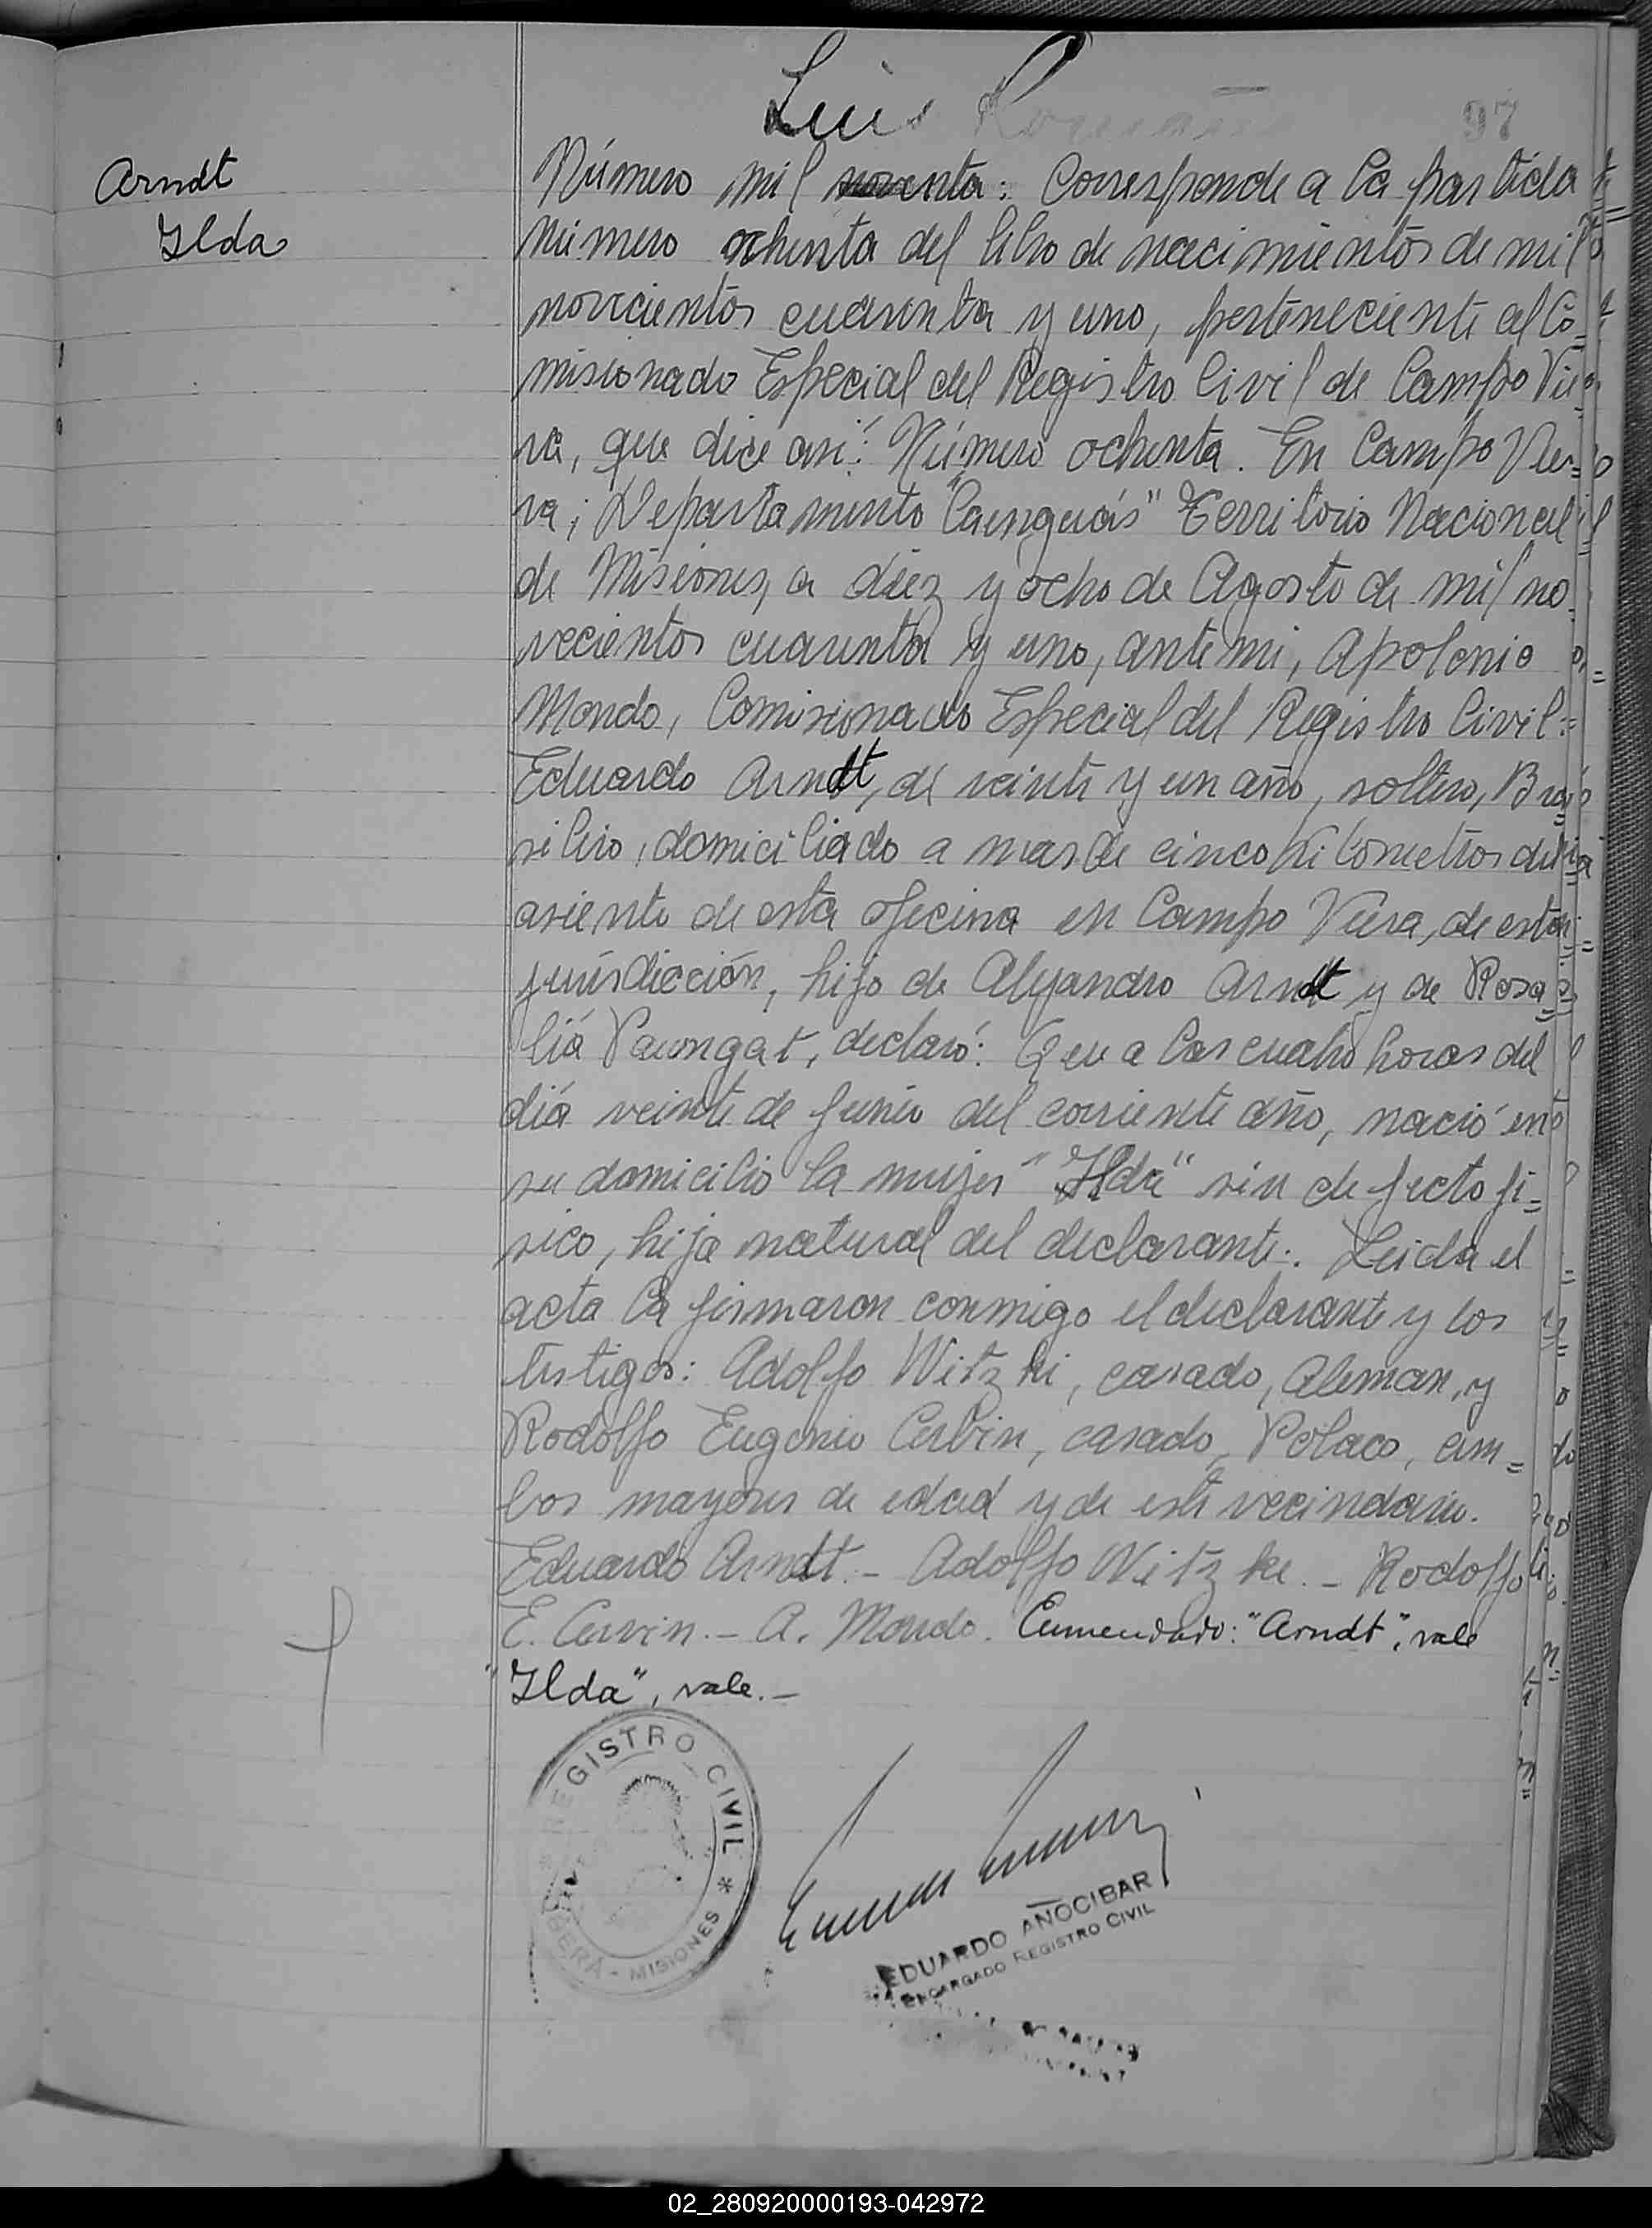 Luis Román
97
Arndt
Ilda
Número mil noventa: Corresponde a la partida
número ochenta del libro de nacimientos de mil
novecientos cuarenta y uno, perteneciente al Co=
misionado Especial del Registro Civil de Campo Vie=
ra, que dice así: Número ochenta. En Campo Vie=
ra, Departamento "Cainguás" Territorio Nacional
de Misiones, a diez y ocho de Agosto de mil no=
vecientos cuarenta y uno, ante mi, Apolonio
Mondo, Comisionado Especial del Registro Civil:=
Eduardo Arndt, de veinte y un año, soltero, Bra=
silero, domiciliado a mas de cinco kilometros del
asiento de esta oficina en Campo Viera, de esta
jurisdicción, hijo de Alejandro Arndt y de Rosa=
lía Paungat, declaró: Que a las cuatro horas del
día veinte de Junio del corriente año, nació en
su domicilio la mujer "Ilda" sin defecto fi=
sico, hija natural del declarante. Leida el
acta la firmaron conmigo el declarante y los
testigos: Adolfo Witzki, casado, Aleman, y
Rodolfo Eugenio Cerbin, casado, Polaco, am=
bos mayores de edad y de este vecindario.
Eduardo Arndt. - Adolfo Witzke. - Rodolfo
E. Cervin. - A. Mondo. Enmendado: "Arndt", vale
"Ilda", vale. -
REGISTRO CIVIL
* BERÁ - MISIONES *
EDUARDO AÑOCIBAR
ENCARGADO REGISTRO CIVIL
02_280920000193-042972